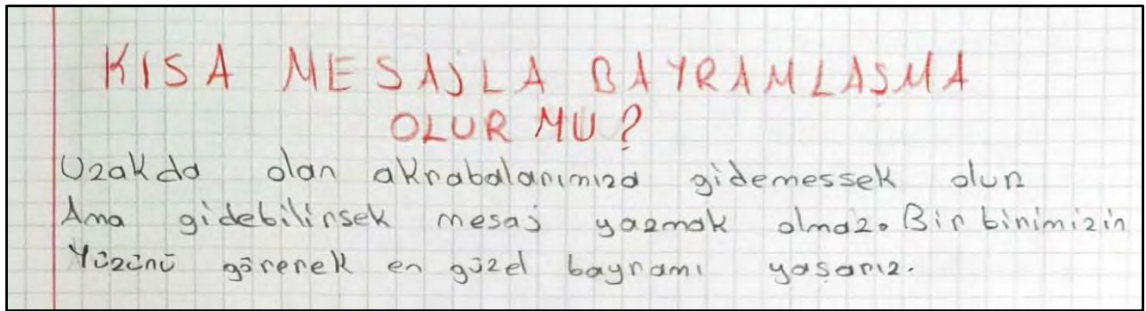 KISA MESAJLA BAYRAMLAŞMA
OLUR MU?
Uzakda olan akrabalarımıza gidemessek olur
Ama gidebilirsek mesaj yazmak olmaz. Bir birimizin
Yüzünü görerek en güzel bayramı yaşarız.